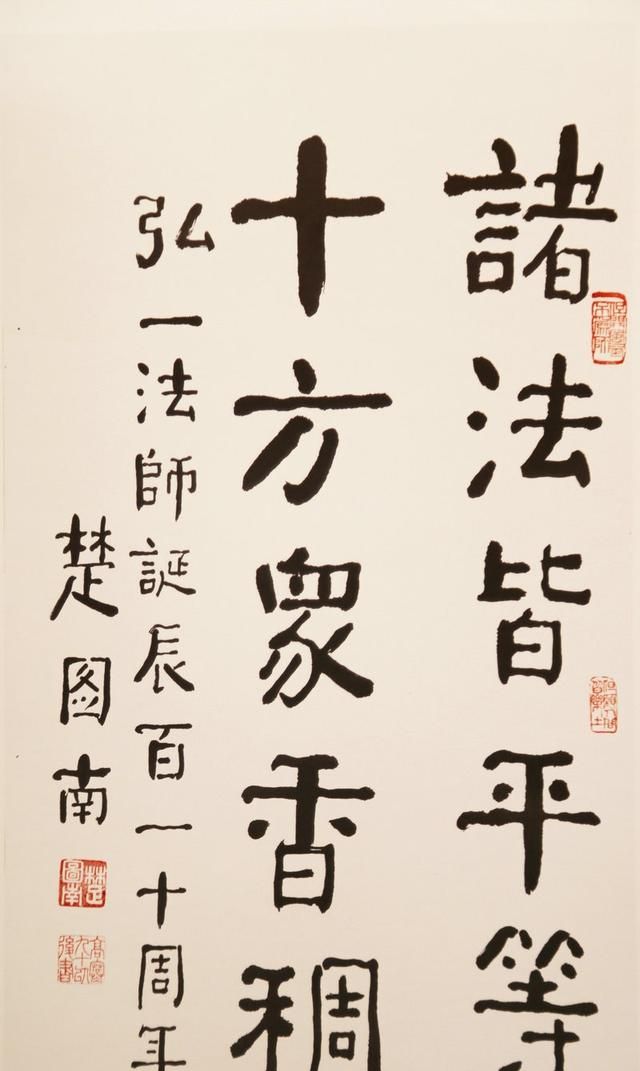 諸法皆平等
十方眾香稠
弘一法師誕辰百一十周年
楚图南
楚圖南